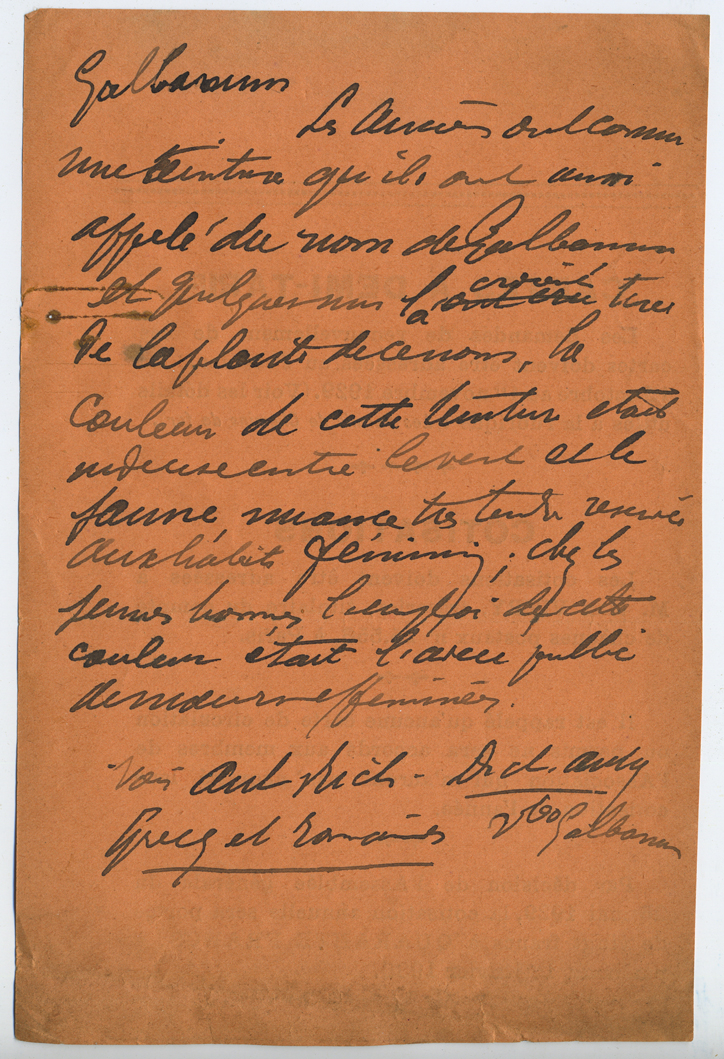 Galbanum
Les Anciens ont connu
une teinture qu'ils ont aussi
appelé du nom de Galbanum
et quelques uns l'a ont cru croient tirée
de la plante de ce nom, la
couleur de cette teinture était
indécise entre le vert et le
jaune nuance très tendre reservée
aux habits féminins ; chez les
jeunes hommes l'emploi de cette
couleur était l'aveu public
de mœurs efféminées.
Voir Ant. Rich - Dict. antiq
Grecq et romaines Vbo Galbanum